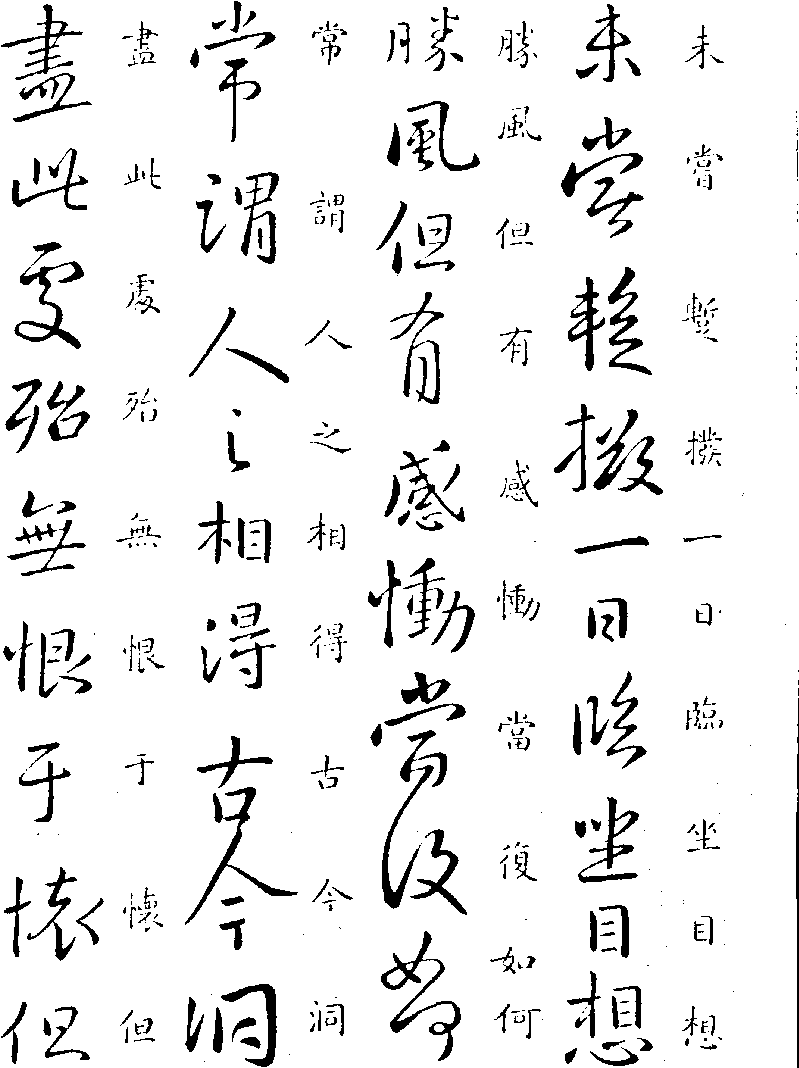 未嘗暫撥一日臨坐目想
未嘗暫撥一日臨坐目想
勝風但有感慟當復如何
勝風但有感慟當復如何
常謂人之相得古今洞
常謂人之相得古今洞
盡此處殆無恨于懷但
盡此處殆無恨于懷但